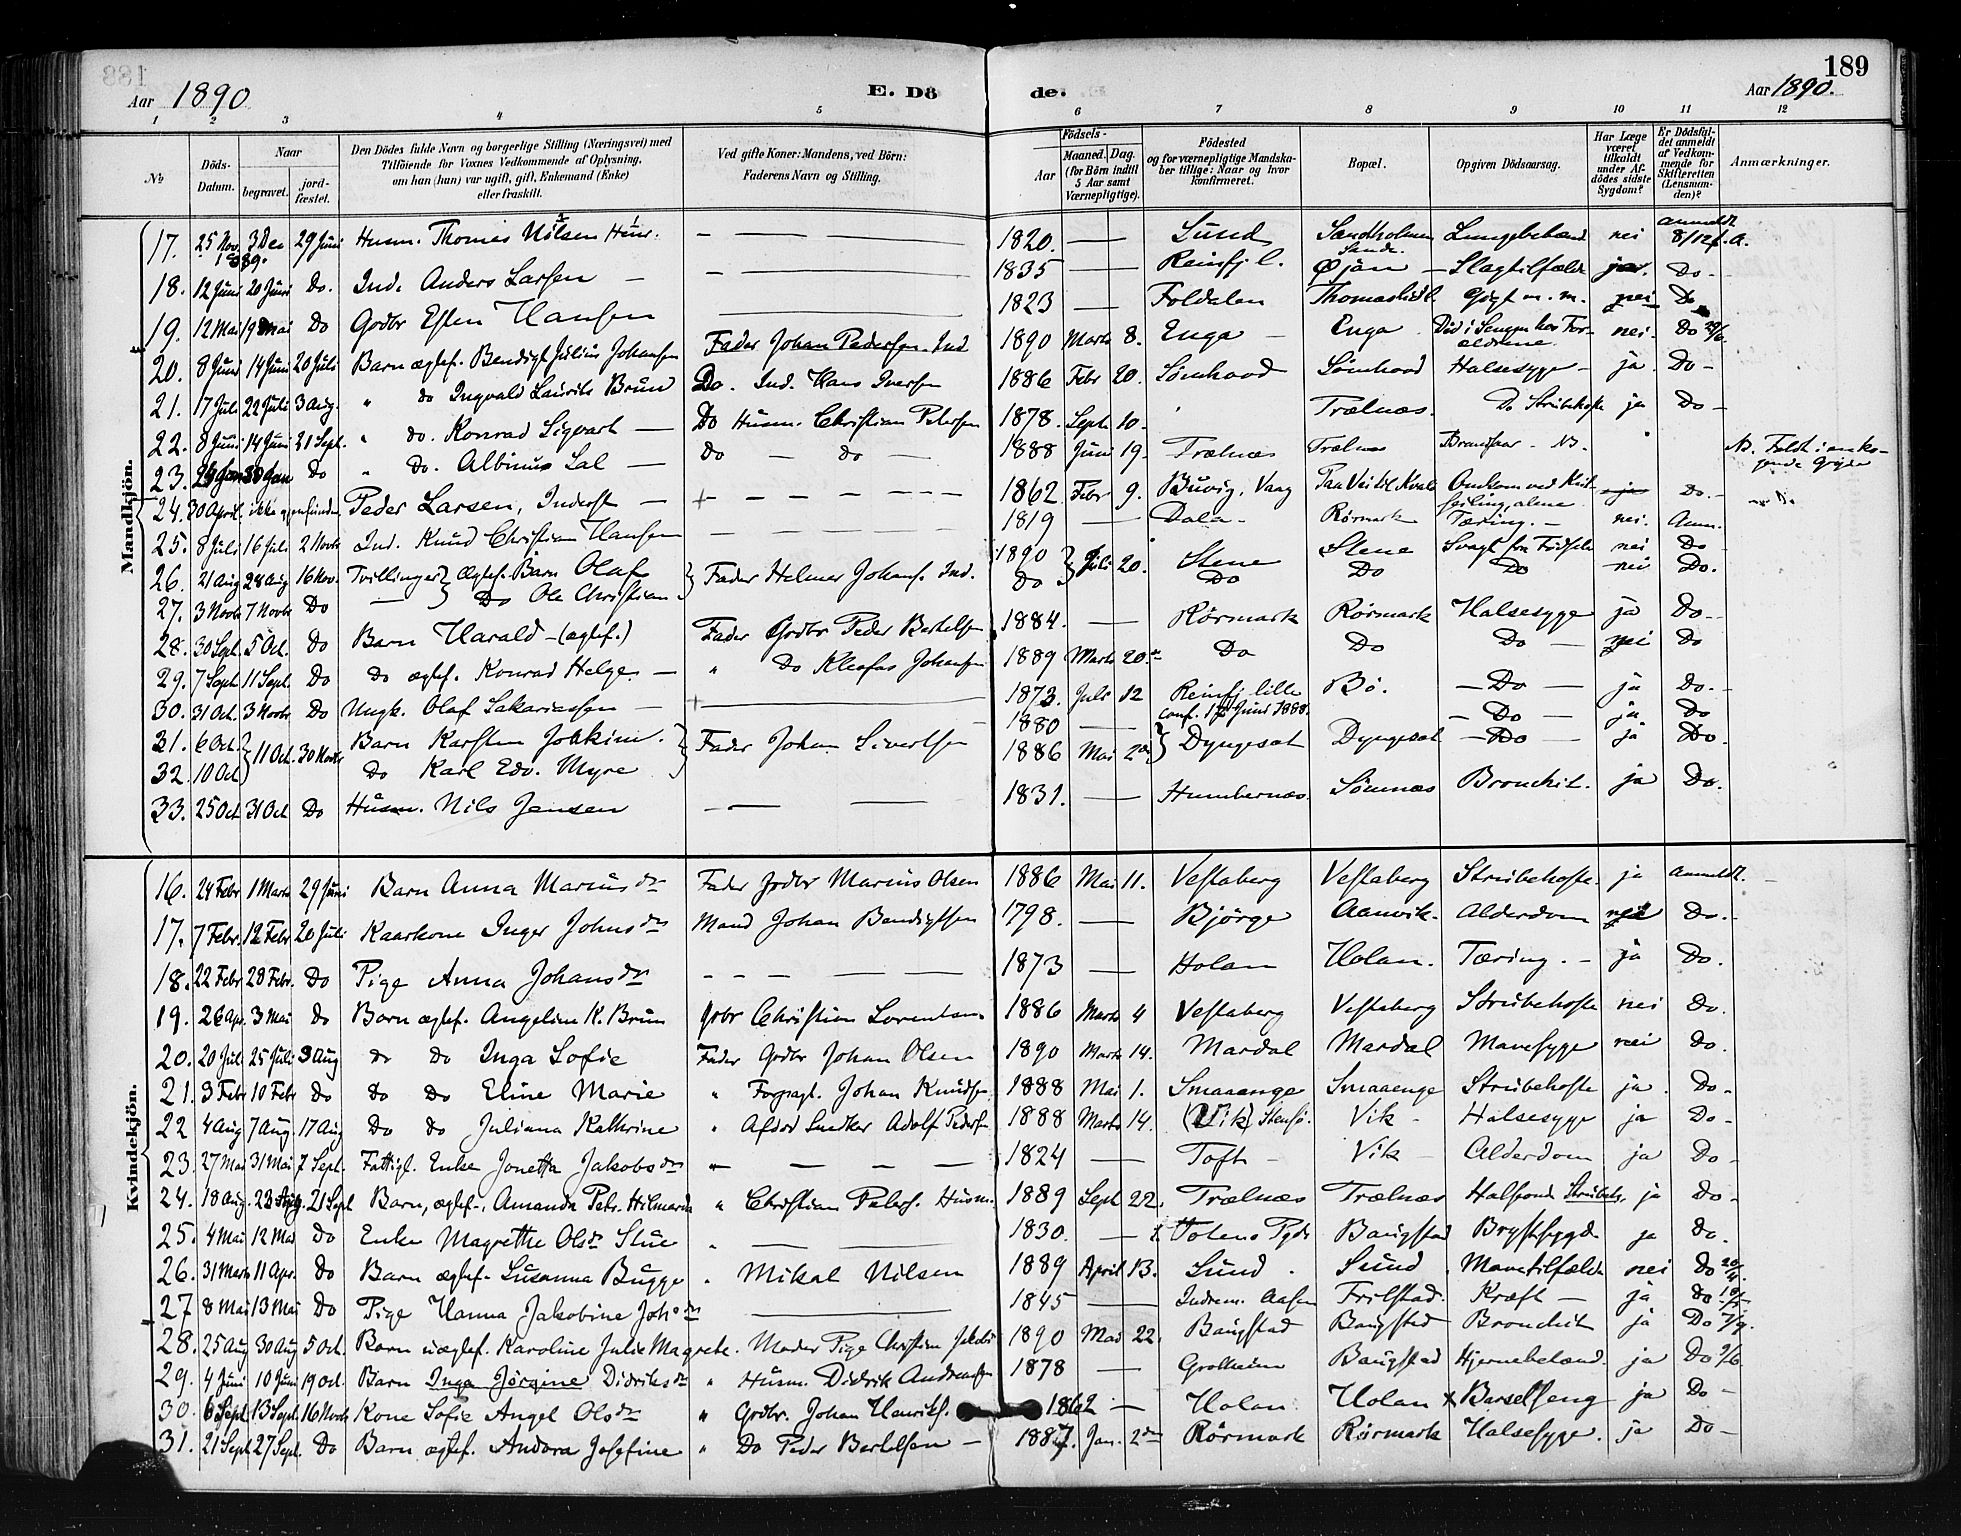 188
Aar 1890
E. Dö
de.
189
Aar 1890.
1 2 3 4 5 6 7 8 9 10 11 12
№
Döds-Datum.
Naar
begravet.
jord-fæstet.
Den Dödes fulde Navn og borgerlige Stilling (Næringsvei) med
Tilföiende for Voxnes Vedkommende af Oplysning,
om han (hun) var ugift, gift, Enkemand (Enke)
eller fraskilt.
Ved gifte Koner: Mandens, ved Börn:
Faderens Navn og Stilling.
Födsels-
Aar
Maaned. Dag.
(for Börn indtil
5 Aar samt
Værnepligtige).
Födested
og for værnepligtige Mandska-
ber tillige: Naar og hvor
konfirmeret.
Bopæl.
Opgiven Dödsaarsag.
Har Læge
været
tilkaldt
under Af-
dödes sidste
Sygdom?
Er Dödsfal-
det anmeldt
af Vedkom-
mende for
Skifteretten
(Lensman-
den)?
Anmærkninger.
Mandkjön.
17. 25 Nov. 1889. 3 Dec 29 Juni Husm. Thomas Nilsen — 1820. — Sund Lungebetænd nei anmeldt 8/12
18. 12 Juni 20 Juni Do. Ind. Anders Larsen — 1835 — Reinfj. l. Øjan — Slagtilfælde Do-
19. 12 Mai 19 Mai Do Godbr Esten Hansen — 1823 — Foldalen Gigt m. m. nei Do
20. 8 Juni 14 Juni 20 Juli Barn ægtef. Bendigt Julius Johansen Fader Johan Pedersen Ind 1890 Marts 8. Enga — Enga Död i Sengen hos For-ældrene. nei. Do
21. 17 Juli 22 Juli 3 Aug. " do Ingvald Laurits Brun Do. Ind. Hans Iversen 1886 Febr 20. Sömhovd Sömhovd Halsesyge — ja Do-
22. 8 Juni 14 Juni 21 Sept. " do. Konrad Sigvart — Do Husm. Christian Petersen 1878. Septb 10. Trælnæs. Do Strubehoste ja Do-
23. Do " Do. Albinus — Do — do — 1888 Juni 19. Trælnæs Trælnæs NB. NB. Faldt i en ko-gende Gryde
24. 30 April. ikke gjenfunden. Peder Larsen, Inderst — + 1862 Febr 9. Omkom ved Kul-seiling, alene Do.-
25. 8 Juli 16 Juli 2 Novbr Ind. Knud Christian Hansen — 1819 — Dala- Rörmark Tæring. — nei. Anm.
26. 21 Aug 28 Aug 16 Nov. Tvillinger } Ægtef. Barn Olaf } Fader Helmer Johans. Ind. 1890 } Juli 20. Stene Stene Svagt fra Födsele nei Do
27. 3 Novbr 7 Novbr Do — } Do Ole Christian Do Do Do Do nei Do.
28. 30 Sept. 5 Oct. Do Barn Harald — (ægtef.) Fader Godbr Peder Bertelsen 1884. — Rörmark Rörmark Halsesyge ja Do-
29. 7 Sept 11 Sept. Do do ægtef. Konrad Helge — " Do Kleofas Johansen 1889 Marts 20 Do Do Do — nei Do
30. 31 Oct. 3 Novbr Do Ungk. Olaf Sakariassen — + 1873. Juli 12 Reinfj. lille conf. Juni 1888. Bö. — Do — ja Do.-
31. 6 Oct. } 11 Oct. 30 Novbr Barn Karsten Joakim. } Fader Johan Sivertsen 1880 — } Dyngesat Dyngesat — Do — ja Do
32. 10 Oct } Do Karl Edv. Myre } 1886 Mai — Do — ja Do.
33. 25 Oct 31 Oct Do Husm. Nils Jensen — 1831. — Humbernæs. Sömnæs Bronchit. ja Do.
Kvindekjön.
16. 24 Febr 1 Marts 29 Juni Barn Anna Marius dr Fader Godbr Marius Olsen 1886 Mai 11. Vestaberg Vestaberg Strubehoste. ja anmeldt.
17. 7 Febr. 12 Febr 20 Juli Kaarkone Inger Johns dr Mand Johan Bendigtsen 1798. — Bjørge Aanvik. Alderdom nei Do.-
18. 22 Febr 28 Febr. Do Pige Anna Johans dr — 1873 — Holan Holan. Tæring. — ja Do.
19. 26 Apr. 3 Mai do Barn ægtef. Angeline K. Brun Christian Lorentsen 1886 Marts 4 Vestaberg Vestaberg Strubehoste nei Do.
20. 20 Juli 25 Juli 3 Aug do do Inga Sofie Fader Godbr Johan Olsen 1890 Marts 14. Mardal Mardal Mavesyge nei Do.
21. 3 Febr 10 Febr Do Do Do Eline Marie " Johan Knudsen 1888 Mai 1. Smaaenge Smaaenge Strubehoste ja. Do-
22 4 Aug 7 Aug. 17 Aug Do do Juliana Kathrine " Afdöd Snedker Adolf Pedersen 1888 Marts 14. (Vik) Vik - Halsesyge ja Do-
23. 27 Mai 31 Mai 7 Sept. Fattigl. Enke Jonetta Jakobs dr — 1824 — Toft - Vik - Alderdom ja Do-
24. 18 Aug. 21 Sept Barn, ægtef., Amanda Petr. Hilmarda " Christian Peters. Husm. 1889 Sept 22. Trælnæs Trælnæs Halsonde ja Do-
25. 4 Mai 12 Mai Do Enke Magrethe Ols dr 1830. — Baugstad Brystsyge ja Do.
26. 31 Marts 11 Apr. Do Barn ægtef. Susanna Bugge " Mikal Nilsen 1889 April 13. Sund. Sund. Mavetilfælde nei Do
27 8 Mai 13 Mai Do Pige Hanna Jakobine Joh s dr — 1845 — Frilstad. Kræft — ja Do
28. 25 Aug 30 Aug 5 Oct. Barn uægtef. Karoline Julie Magrete. Moder Pige 1890 Mai 22. Baugstad Baugstad Bronchit ja Do 7/9.
29. 4 Juni 10 Juni 19 Oct. Barn Inga Jörgine Didriks dr " Husm. Didrik Andreassen 1878 — Grolheim Baugstad Hjernebetænd. ja Do
30. 6 Sept. 13 Sept. 16 Novbr Kone Sofie Angel Ols dr " Godbr. Johan Henriks. 1862 — Holan Holan x Barselseng ja Do-
31. 21 Sept 27 Sept. Do Barn ægtef. Andora Josefine " Do Peder Bertelsen — 1887. Jan. 2 den Rörmark Rörmark Halsesyge. ja Do-